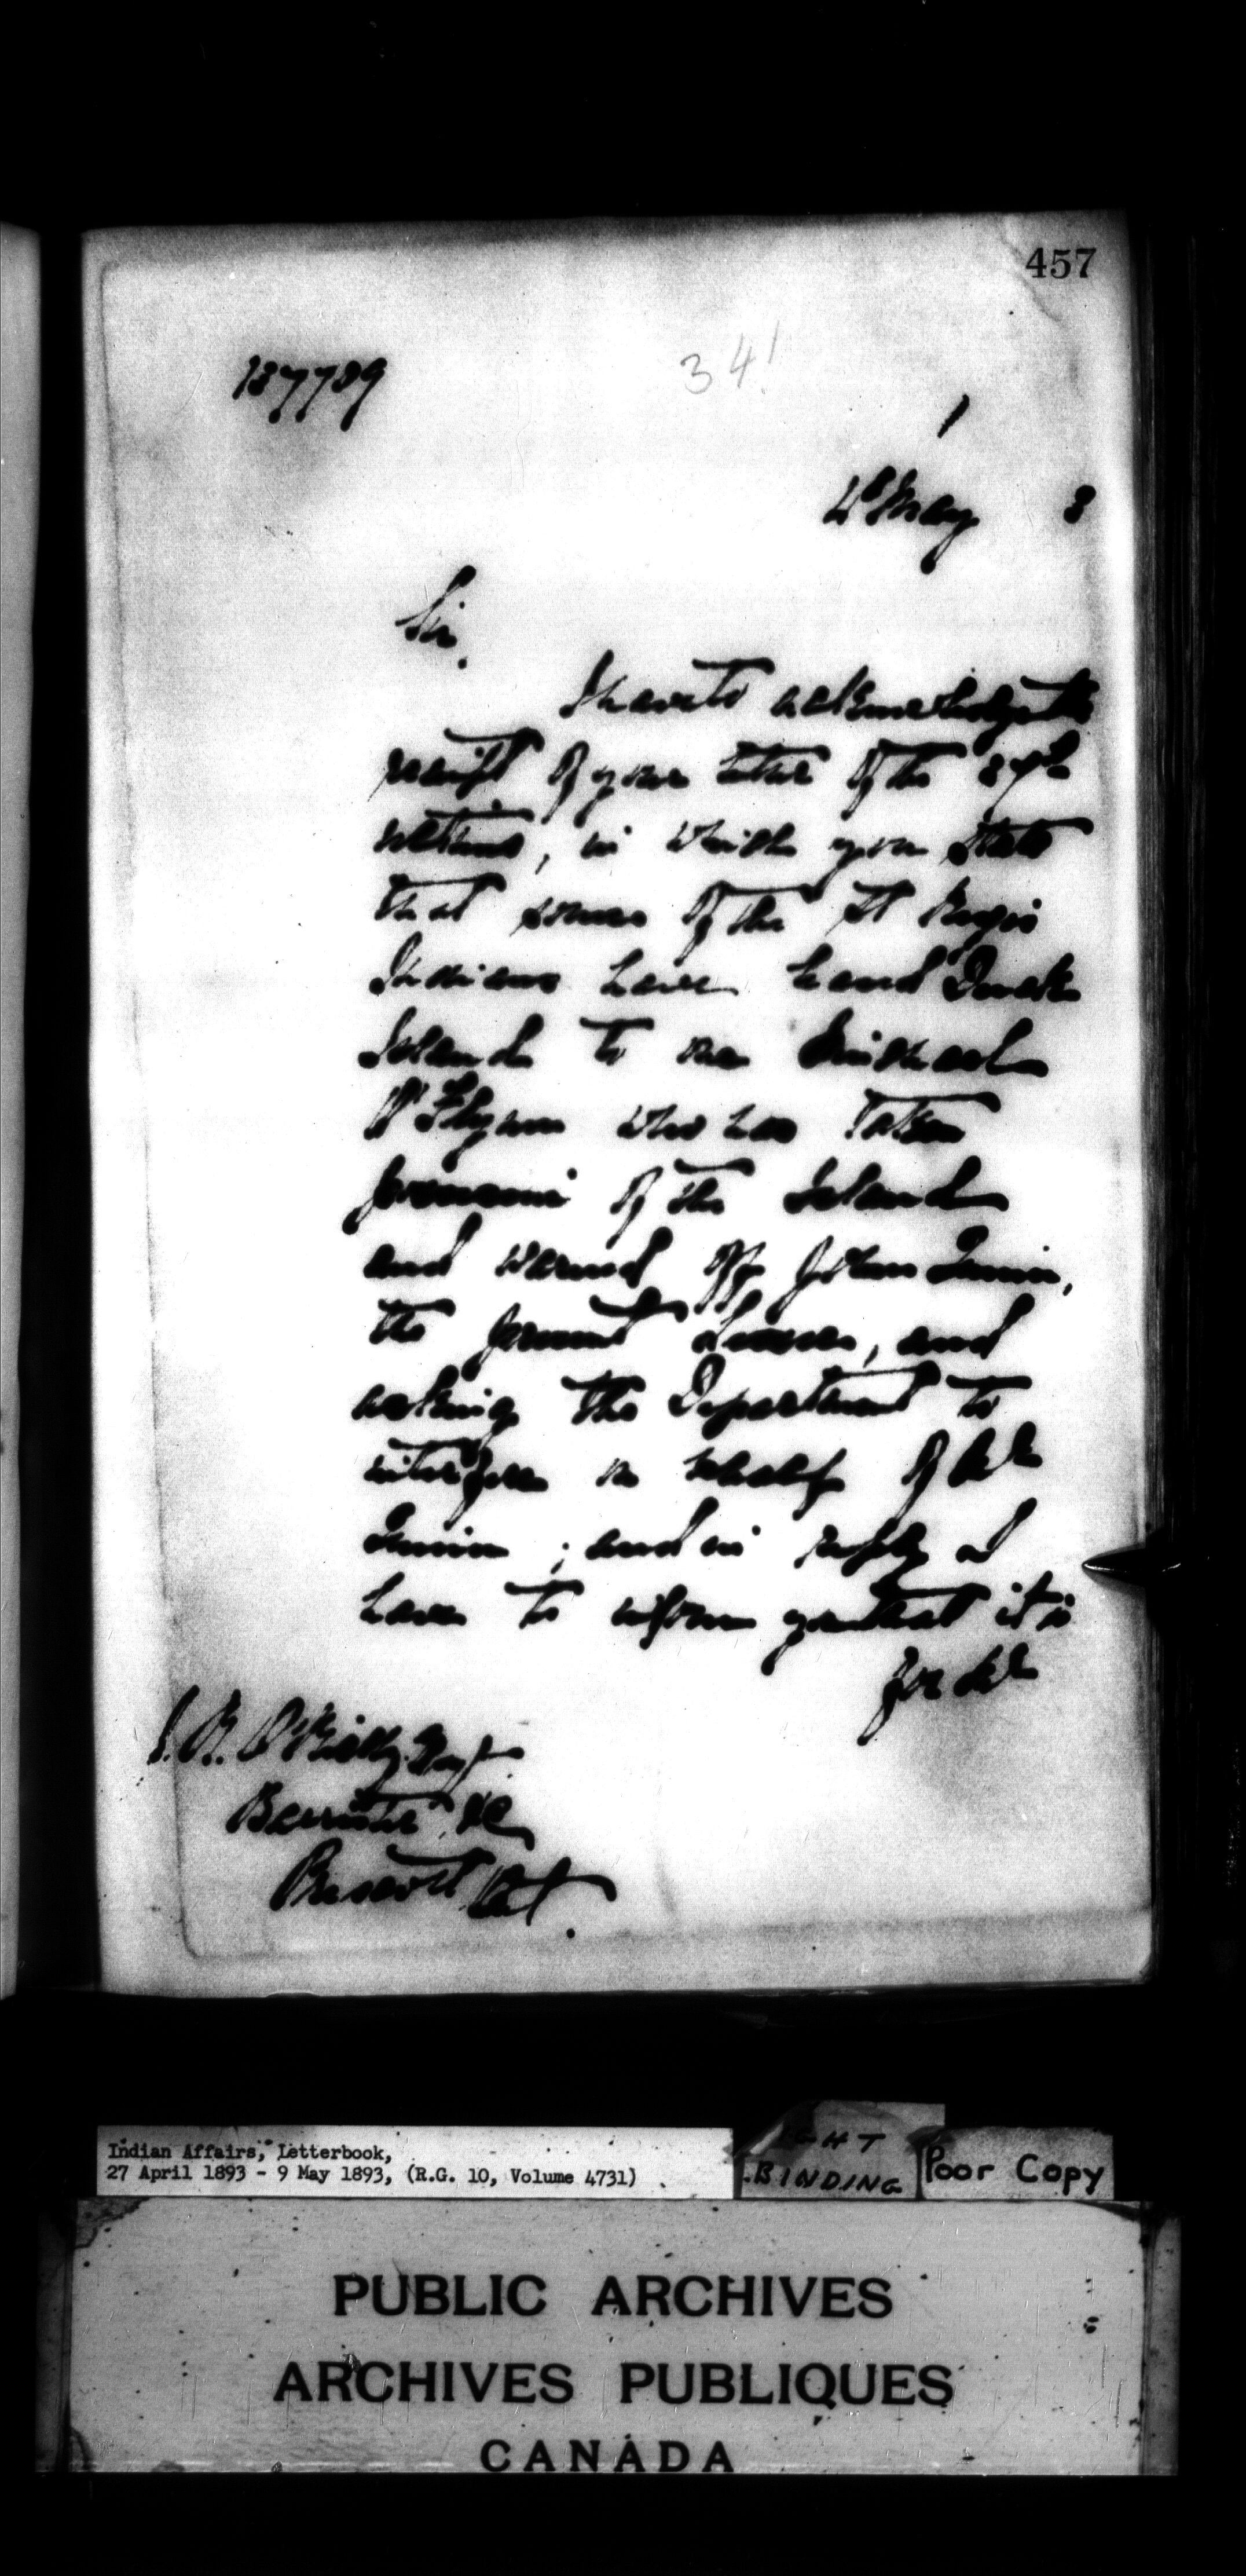 457
34!
137739
4th May 3
Sir,
I have to acknowledge the
receipt of your letter of the 27th
ultimo, in which you state
that some of the St Regis
Indians have leased Duck
Island to one Michael
O'Flynn who has taken
possession of the Island
and warned off John Quinn,
the present Lessee, and
asking the Department to
interfere on behalf of Mr
Quinn; and in reply I
have to inform you that it is
for Mr
J. K. O'Reilly, Esqr.
Barrister, &c
Prescott, Ont.
Indian Affairs, Letterbook,
27 April 1893 - 9 May 1893, (R.G. 10, Volume 4731)
BINDING
Poor Copy
PUBLIC ARCHIVES
ARCHIVES PUBLIQUES
CANADA